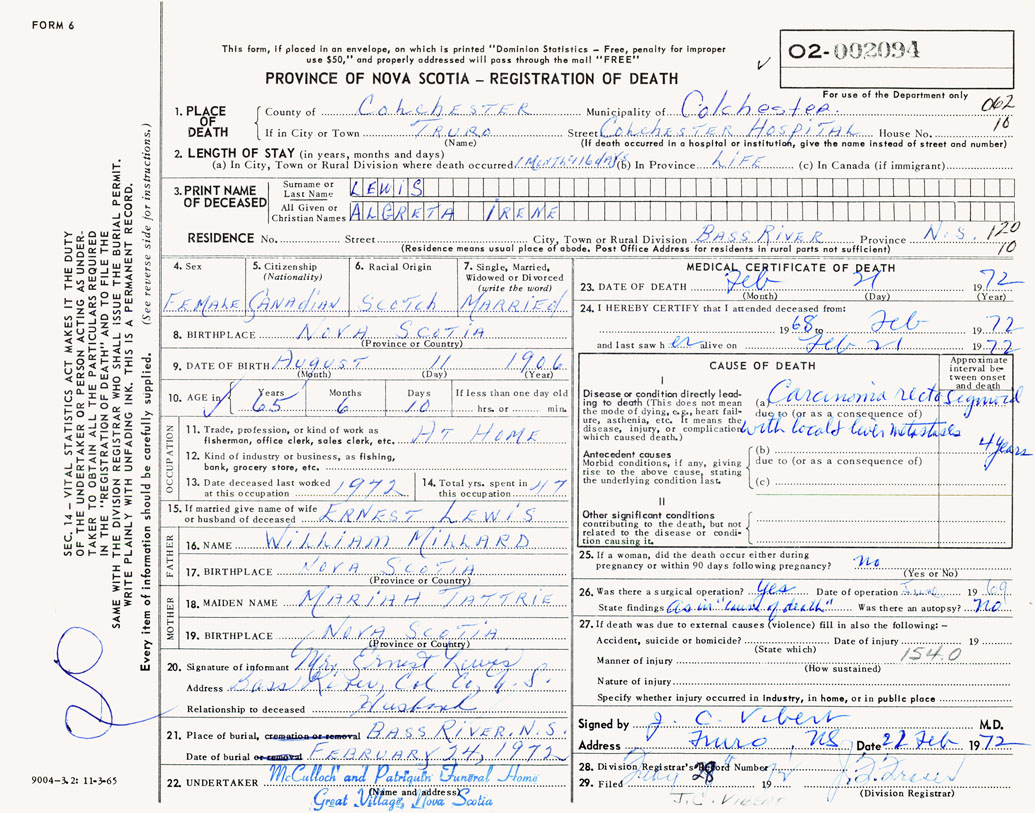 FORM 6
This form, if placed in an envelope, on which is printed "Dominion Statistics – Free, penalty for improper
use $50," and properly addressed will pass through the mail "FREE"
O2-002094
PROVINCE OF NOVA SCOTIA – REGISTRATION OF DEATH
For use of the Department only
1. PLACE OF DEATH County of COLCHESTER Municipality of Colchester 062
If in City or Town TRURO Street COLCHESTER HOSPITAL House No. 10
(Name) (If death occurred in a hospital or institution, give the name instead of street and number)
2. LENGTH OF STAY (in years, months and days)
(a) In City, Town or Rural Division where death occurred 1 MONTH 16 DAYS (b) In Province LIFE (c) In Canada (if immigrant)
3. PRINT NAME OF DECEASED
Surname or Last Name LEWIS
All Given or Christian Names ALGRETA IRENE
RESIDENCE No. Street City, Town or Rural Division BASS RIVER Province N.S. 120
(Residence means usual place of abode. Post Office Address for residents in rural parts not sufficient) 10
4. Sex FEMALE
5. Citizenship (Nationality) CANADIAN
6. Racial Origin SCOTCH
7. Single, Married, Widowed or Divorced (write the word) MARRIED
8. BIRTHPLACE NOVA SCOTIA
(Province or Country)
9. DATE OF BIRTH AUGUST 11 1906
(Month) (Day) (Year)
10. AGE in Years 65 Months 6 Days 10 If less than one day old hrs. or min.
OCCUPATION
11. Trade, profession, or kind of work as fisherman, office clerk, sales clerk, etc. AT HOME
12. Kind of industry or business, as fishing, bank, grocery store, etc.
13. Date deceased last worked at this occupation 1972
14. Total yrs. spent in this occupation 47
15. If married give name of wife or husband of deceased ERNEST LEWIS
FATHER
16. NAME WILLIAM MILLARD
17. BIRTHPLACE NOVA SCOTIA
(Province or Country)
MOTHER
18. MAIDEN NAME MARIAH TATTRIE
19. BIRTHPLACE NOVA SCOTIA
(Province or Country)
20. Signature of informant Mr. Ernest Lewis
Address Bass River, Col. Co., N.S.
Relationship to deceased Husband
21. Place of burial, cremation or removal BASS RIVER, N.S.
Date of burial or removal FEBRUARY 24, 1972
22. UNDERTAKER McCulloch and Patriquin Funeral Home
(Name and address)
Great Village, Nova Scotia
MEDICAL CERTIFICATE OF DEATH
23. DATE OF DEATH Feb 21 1972
(Month) (Day) (Year)
24. I HEREBY CERTIFY that I attended deceased from:
1968 to Feb 1972
and last saw her alive on Feb 21 1972
CAUSE OF DEATH
Approximate interval between onset and death
I
Disease or condition directly leading to death (This does not mean the mode of dying, e.g., heart failure, asthenia, etc. It means the disease, injury, or complication which caused death.)
(a) Carcinoma recto sigmoid
due to (or as a consequence of)
with local & liver metastases
4 years
Antecedent causes
Morbid conditions, if any, giving rise to the above cause, stating the underlying condition last.
(b)
due to (or as a consequence of)
(c)
II
Other significant conditions
contributing to the death, but not related to the disease or condition causing it.
25. If a woman, did the death occur either during pregnancy or within 90 days following pregnancy? no
(Yes or No)
26. Was there a surgical operation? yes Date of operation June 1969
State findings as in "cause of death" Was there an autopsy? no
27. If death was due to external causes (violence) fill in also the following: –
Accident, suicide or homicide? Date of injury 19
(State which)
154.0
Manner of injury
(How sustained)
Nature of injury
Specify whether injury occurred in Industry, in home, or in public place
Signed by J. C. Vibert M.D.
Address Truro, NS Date 22 Feb 1972
28. Division Registrar's Record Number
29. Filed 28 19
(Division Registrar)
J.C. VIBERT
SEC. 14 – VITAL STATISTICS ACT MAKES IT THE DUTY
OF THE UNDERTAKER OR PERSON ACTING AS UNDER-
TAKER TO OBTAIN ALL THE PARTICULARS REQUIRED
IN THE "REGISTRATION OF DEATH" AND TO FILE THE
SAME WITH THE DIVISION REGISTRAR WHO SHALL ISSUE THE BURIAL PERMIT.
WRITE PLAINLY WITH UNFADING INK. THIS IS A PERMANENT RECORD.
Every item of information should be carefully supplied. (See reverse side for instructions.)
9004–3.2: 11-3-65